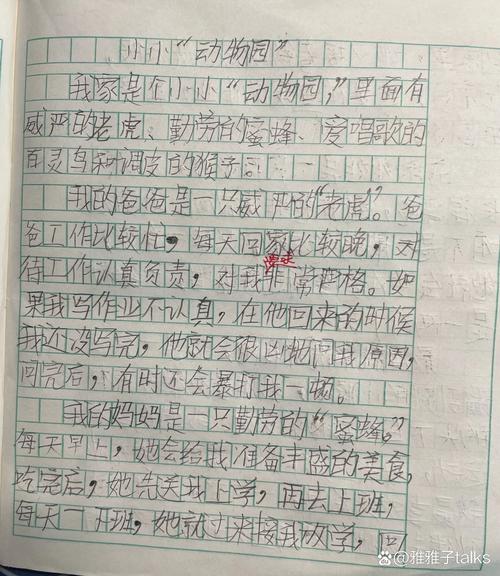 小小“动物园”
我家是个小小“动物园”，里面有
威严的老虎、勤劳的蜜蜂、爱唱歌的
百灵鸟和调皮的猴子。
我的爸爸是一只威严的“老虎”。爸
爸工作比较忙，每天回家比较晚，对
待工作认真负责，对我非常严格。如
要求
果我写作业不认真，在他回来的时候
我还没写完，他就会很凶地问我原因，
问完后，有时还会暴打我一顿。
我的妈妈是一只勤劳的“蜜蜂。”
每天早上，她会给我准备丰盛的美食，
吃完后，她先送我上学，再去上班，
每天一下班，她就过来接我放学，回
@雅雅子talks